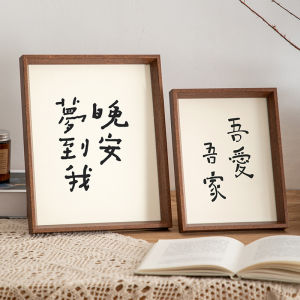 晚安
夢到我
吾愛
吾家